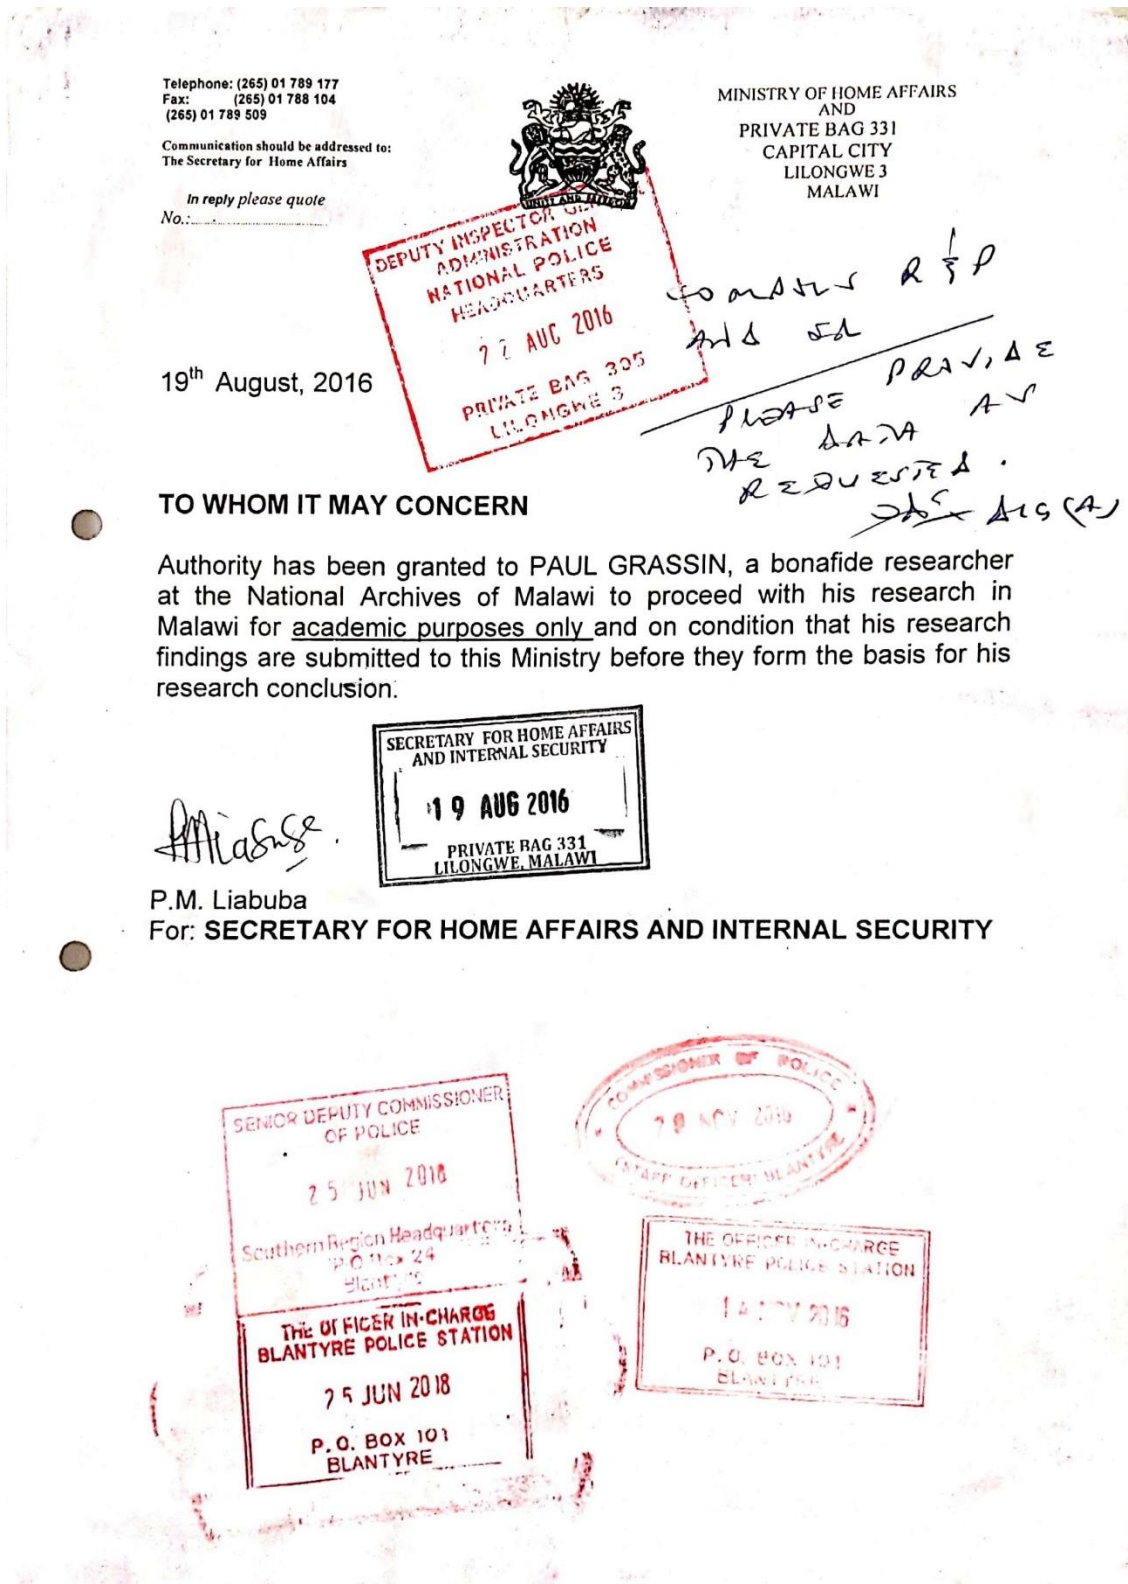 Telephone: (265) 01 789 177
Fax: (265) 01 788 104
(265) 01 789 509
Communication should be addressed to:
The Secretary for Home Affairs
In reply please quote
No.:
MINISTRY OF HOME AFFAIRS
AND
PRIVATE BAG 331
CAPITAL CITY
LILONGWE 3
MALAWI
UNITY AND FREEDOM
DEPUTY INSPECTOR
ADMINISTRATION
NATIONAL POLICE
HEADQUARTERS
AUG 2016
PRIVATE BAG 305
LILONGWE 3
R & P
AND
PLEASE PROVIDE
THE DATA AS
REQUESTED.
19th August, 2016
TO WHOM IT MAY CONCERN
Authority has been granted to PAUL GRASSIN, a bonafide researcher
at the National Archives of Malawi to proceed with his research in
Malawi for academic purposes only and on condition that his research
findings are submitted to this Ministry before they form the basis for his
research conclusion.
SECRETARY FOR HOME AFFAIRS
AND INTERNAL SECURITY
19 AUG 2016
PRIVATE BAG 331
LILONGWE, MALAWI
P.M. Liabuba
For: SECRETARY FOR HOME AFFAIRS AND INTERNAL SECURITY
SENIOR DEPUTY COMMISSIONER
OF POLICE
25 JUN 2018
Southern Region Headquarters
P.O. Box 24
Blantyre
COMMISSIONER OF POLICE
NOV 2016
(STAFF OFFICER) BLANTYRE
THE OFFICER IN-CHARGE
BLANTYRE POLICE STATION
25 JUN 2018
P.O. BOX 101
BLANTYRE
THE OFFICER IN-CHARGE
BLANTYRE POLICE STATION
14 NOV 2016
P.O. BOX 101
BLANTYRE